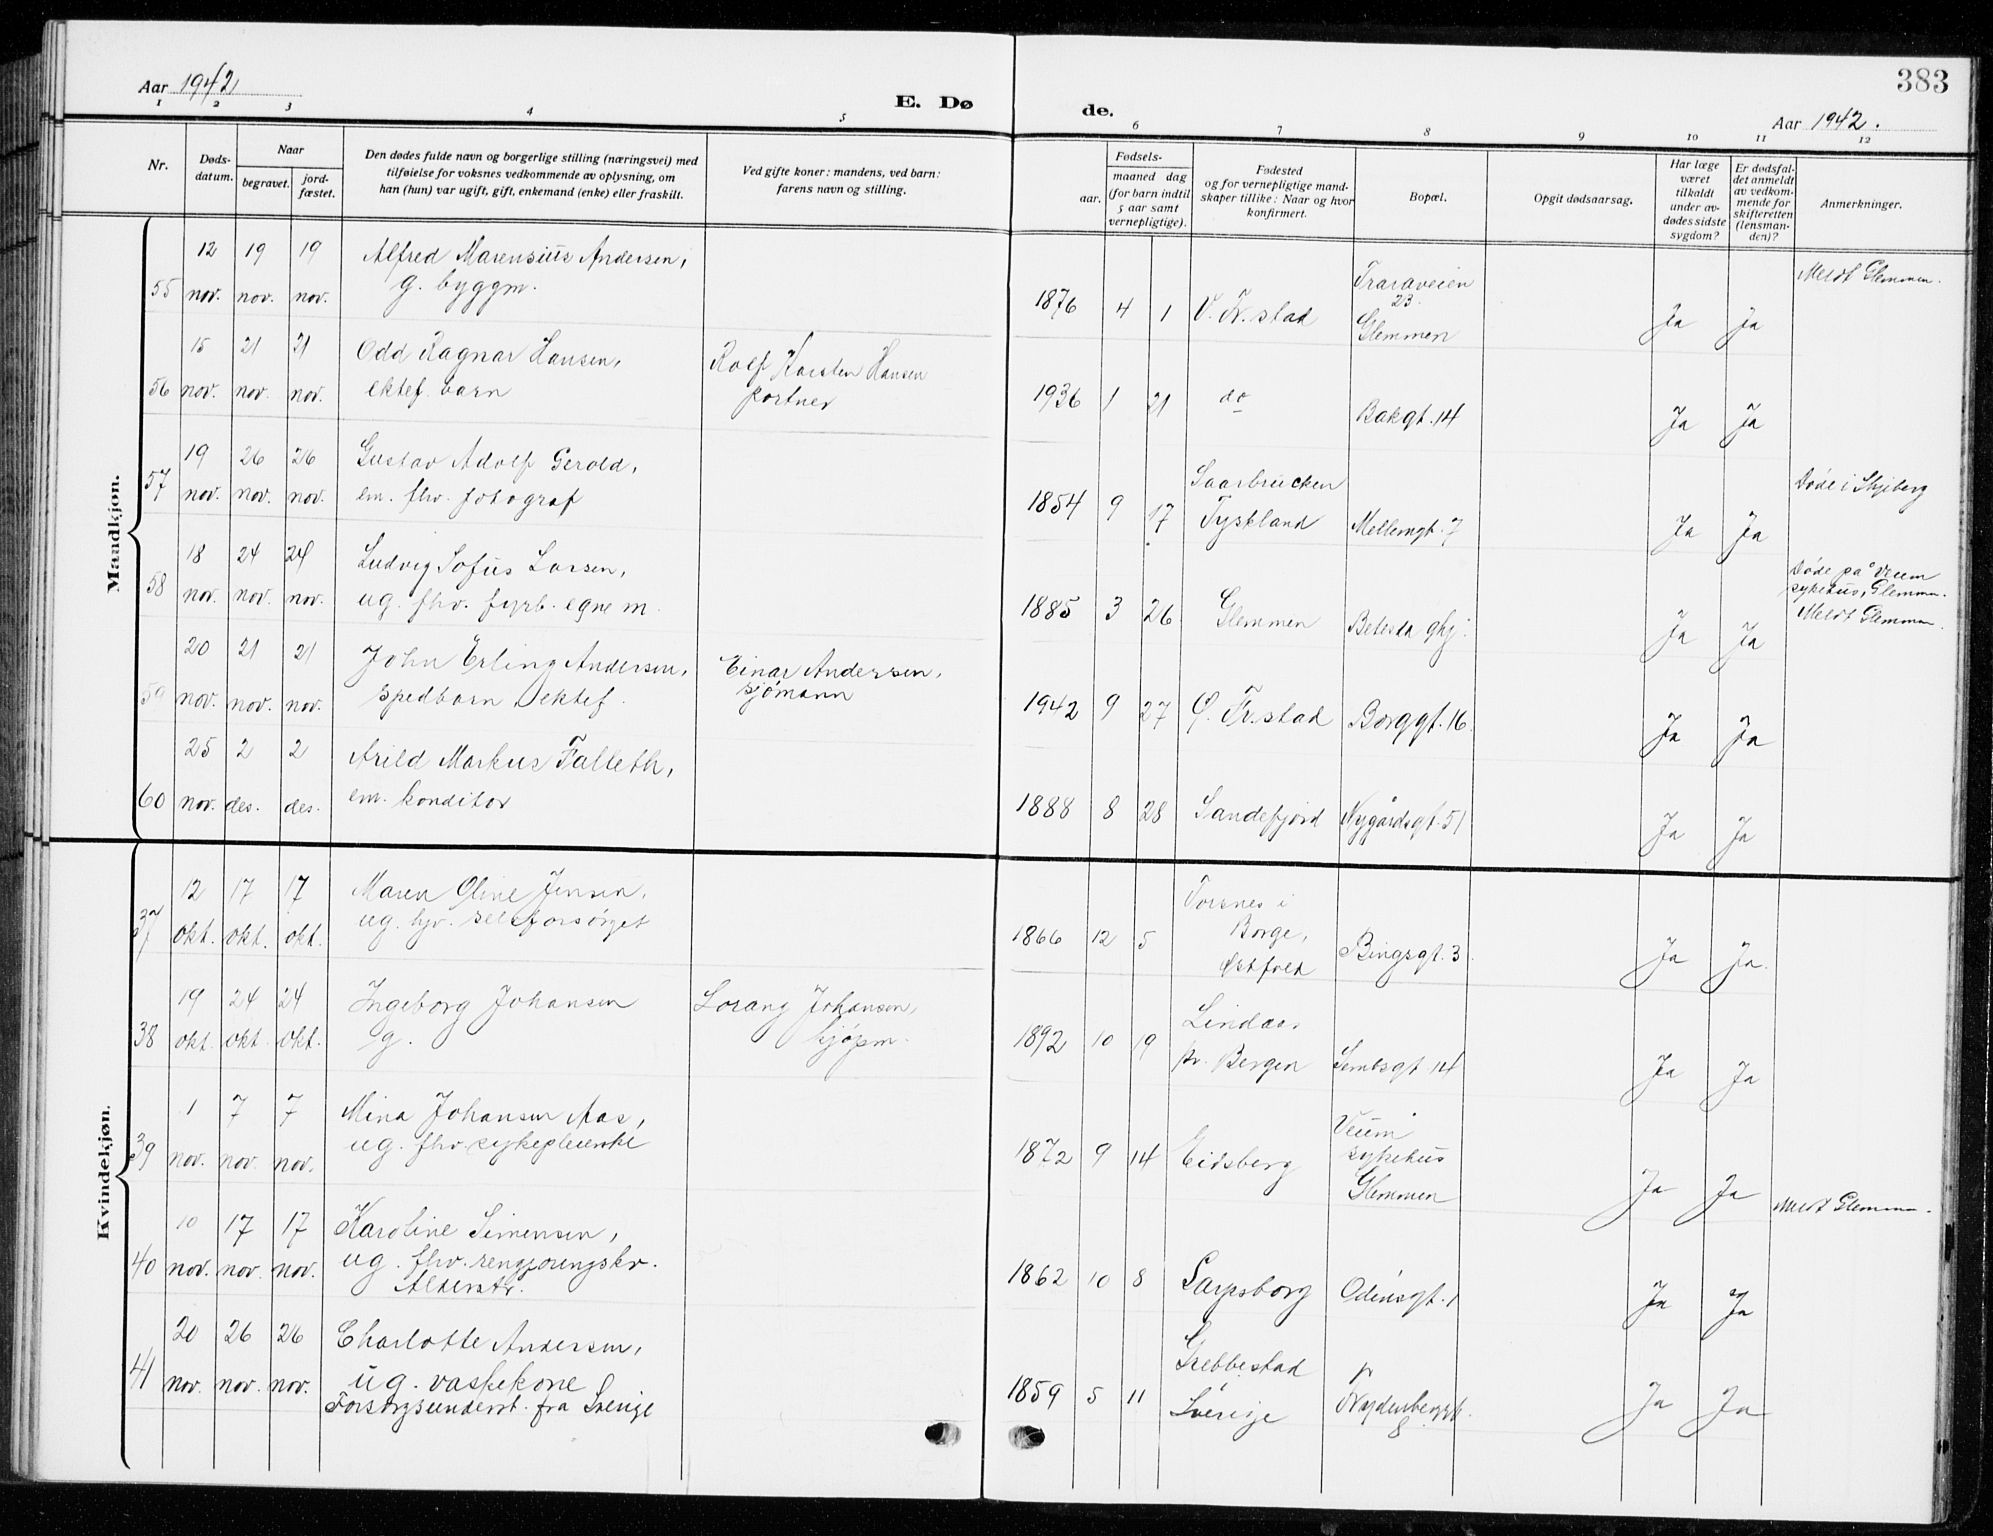 383
Aar 1942
E. Dø
de.
Aar 1942.
1 2 3 4 5 6 7 8 9 10 11 12
Nr.
Døds-
datum.
Naar
begravet.
jord-
fæstet.
Den dødes fulde navn og borgerlige stilling (næringsvei) med
tilføielse for voksnes vedkommende av oplysning, om
han (hun) var ugift, gift, enkemand (enke) eller fraskilt.
Ved gifte koner: mandens, ved barn:
farens navn og stilling.
Fødsels-
aar.
maaned dag
(for barn indtil
5 aar samt
vernepligtige).
Fødested
og for vernepligtige mand-
skaper tillike: Naar og hvor
konfirmert.
Bopæl.
Opgit dødsaarsag.
Har læge
været
tilkaldt
under av-
dødes sidste
sygdom?
Er dødsfal-
det anmeldt
av vedkom-
mende for
skifteretten
(lensman-
den)?
Anmerkninger.
Mandkjøn.
55 12 nov. 19 nov. 19 nov. Alfred Marensius Andersen,
g. byggm.
1876 4 1 V. Fr.stad Traraveien
23
Glemmen
Ja Ja Meldt Glemmen.
56 15 nov. 21 nov. 21 nov. Odd Ragnar Hansen,
ektef. barn
Rolf Karsten Hansen
portner
1936 1 21 do Bakgt. 14 Ja Ja
57 19 nov. 26 nov. 26 nov. Gustav Adolf Gerold,
em. fhv. fotograf
1854 9 17 Saarbrücken
Tyskland
Mellemgt. 7 Ja Ja Døde i Skjeberg
58 18 nov. 24 nov. 24 nov. Ludvig Sofus Larsen,
ug. fhv. fyrb. egne m.
1885 3 26 Glemmen Betesda ghj. Ja Ja
Døde på Veum
sykehus, Glemmen.
Meldt Glemmen.
59 20 nov. 21 nov. 21 nov. John Erling Andersen,
spedbarn, ektef.
Einar Andersen,
sjømann
1942 9 27 Ø. Fr.stad Borggt. 16 Ja Ja
60 25 nov. 2 des. 2 des. Arild Markus Falleth,
em. konditor
1888 8 28 Sandefjord Nygårdsgt. 51 Ja Ja
Kvindekjøn.
37 12 okt. 17 okt. 17 okt. Maren Oline Jensen,
ug. hjv. selvforsørget
1866 12 5 Torsnes i
Borge,
Østfold
Bingsgt. 3 Ja Ja.
38 19 okt. 24 okt. 24 okt. Ingeborg Johansen
g.
Lorang Johansen,
kjøpm.
1892 10 19 Lindaas
pr. Bergen
Lembsgt. 14 Ja Ja
39 1 nov. 7 nov. 7 nov. Mina Johansen Aas,
ug. fhv. sykepleierske
1872 9 14 Eidsberg Veum
sykehus
Glemmen
Ja Ja Meldt Glemmen.
40 10 nov. 17 nov. 17 nov. Karoline Simensen,
ug. fhv. rengjøringskv.
Alderstr.
1862 10 8 Sarpsborg Odinsgt. 1 Ja Ja
41 20 nov. 26 nov. 26 nov. Charlotte Andersen,
ug. vaskekone
Forsørgsunderst. fra Sverige
1859 5 11 Grebbestad
Sverige
8 Ja Ja